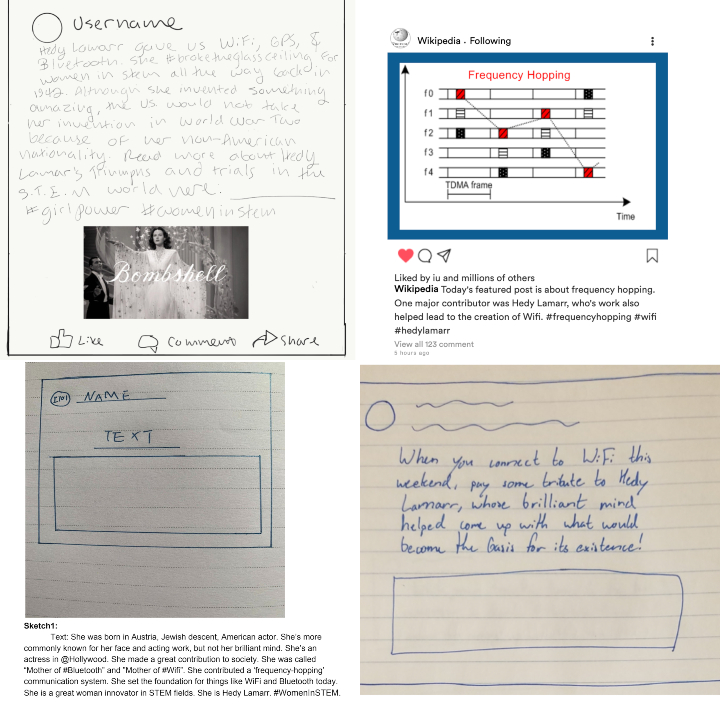 Username
Hedy Lamarr gave us WiFi, GPS, &
Bluetooth. She #broketheglassceiling for
women in stem all the way back in
1942. Although she invented something
amazing, the US would not take
her invention in World War Two
because of her non-American
nationality. Read more about Hedy
Lamar's Triumphs and trials in the
S.T.E.M world here:
#girlpower #womeninstem
Bombshell
Like Comment Share
Wikipedia . Following
Frequency Hopping
f0
f1
f2
f3
f4
TDMA frame
Time
Liked by iu and millions of others
Wikipedia Today's featured post is about frequency hopping.
One major contributor was Hedy Lamarr, who's work also
helped lead to the creation of Wifi. #frequencyhopping #wifi
#hedylamarr
View all 123 comment
5 hours ago
NAME
TEXT
Sketch1:
Text: She was born in Austria, Jewish descent, American actor. She's more
commonly known for her face and acting work, but not her brilliant mind. She's an
actress in @Hollywood. She made a great contribution to society. She was called
"Mother of #Bluetooth" and "Mother of #Wifi". She contributed a 'frequency-hopping'
communication system. She set the foundation for things like WiFi and Bluetooth today.
She is a great woman innovator in STEM fields. She is Hedy Lamarr. #WomenInSTEM.
When you connect to WiFi this
weekend, pay some tribute to Hedy
Lamarr, whose brilliant mind
helped come up with what would
become the basis for its existence!